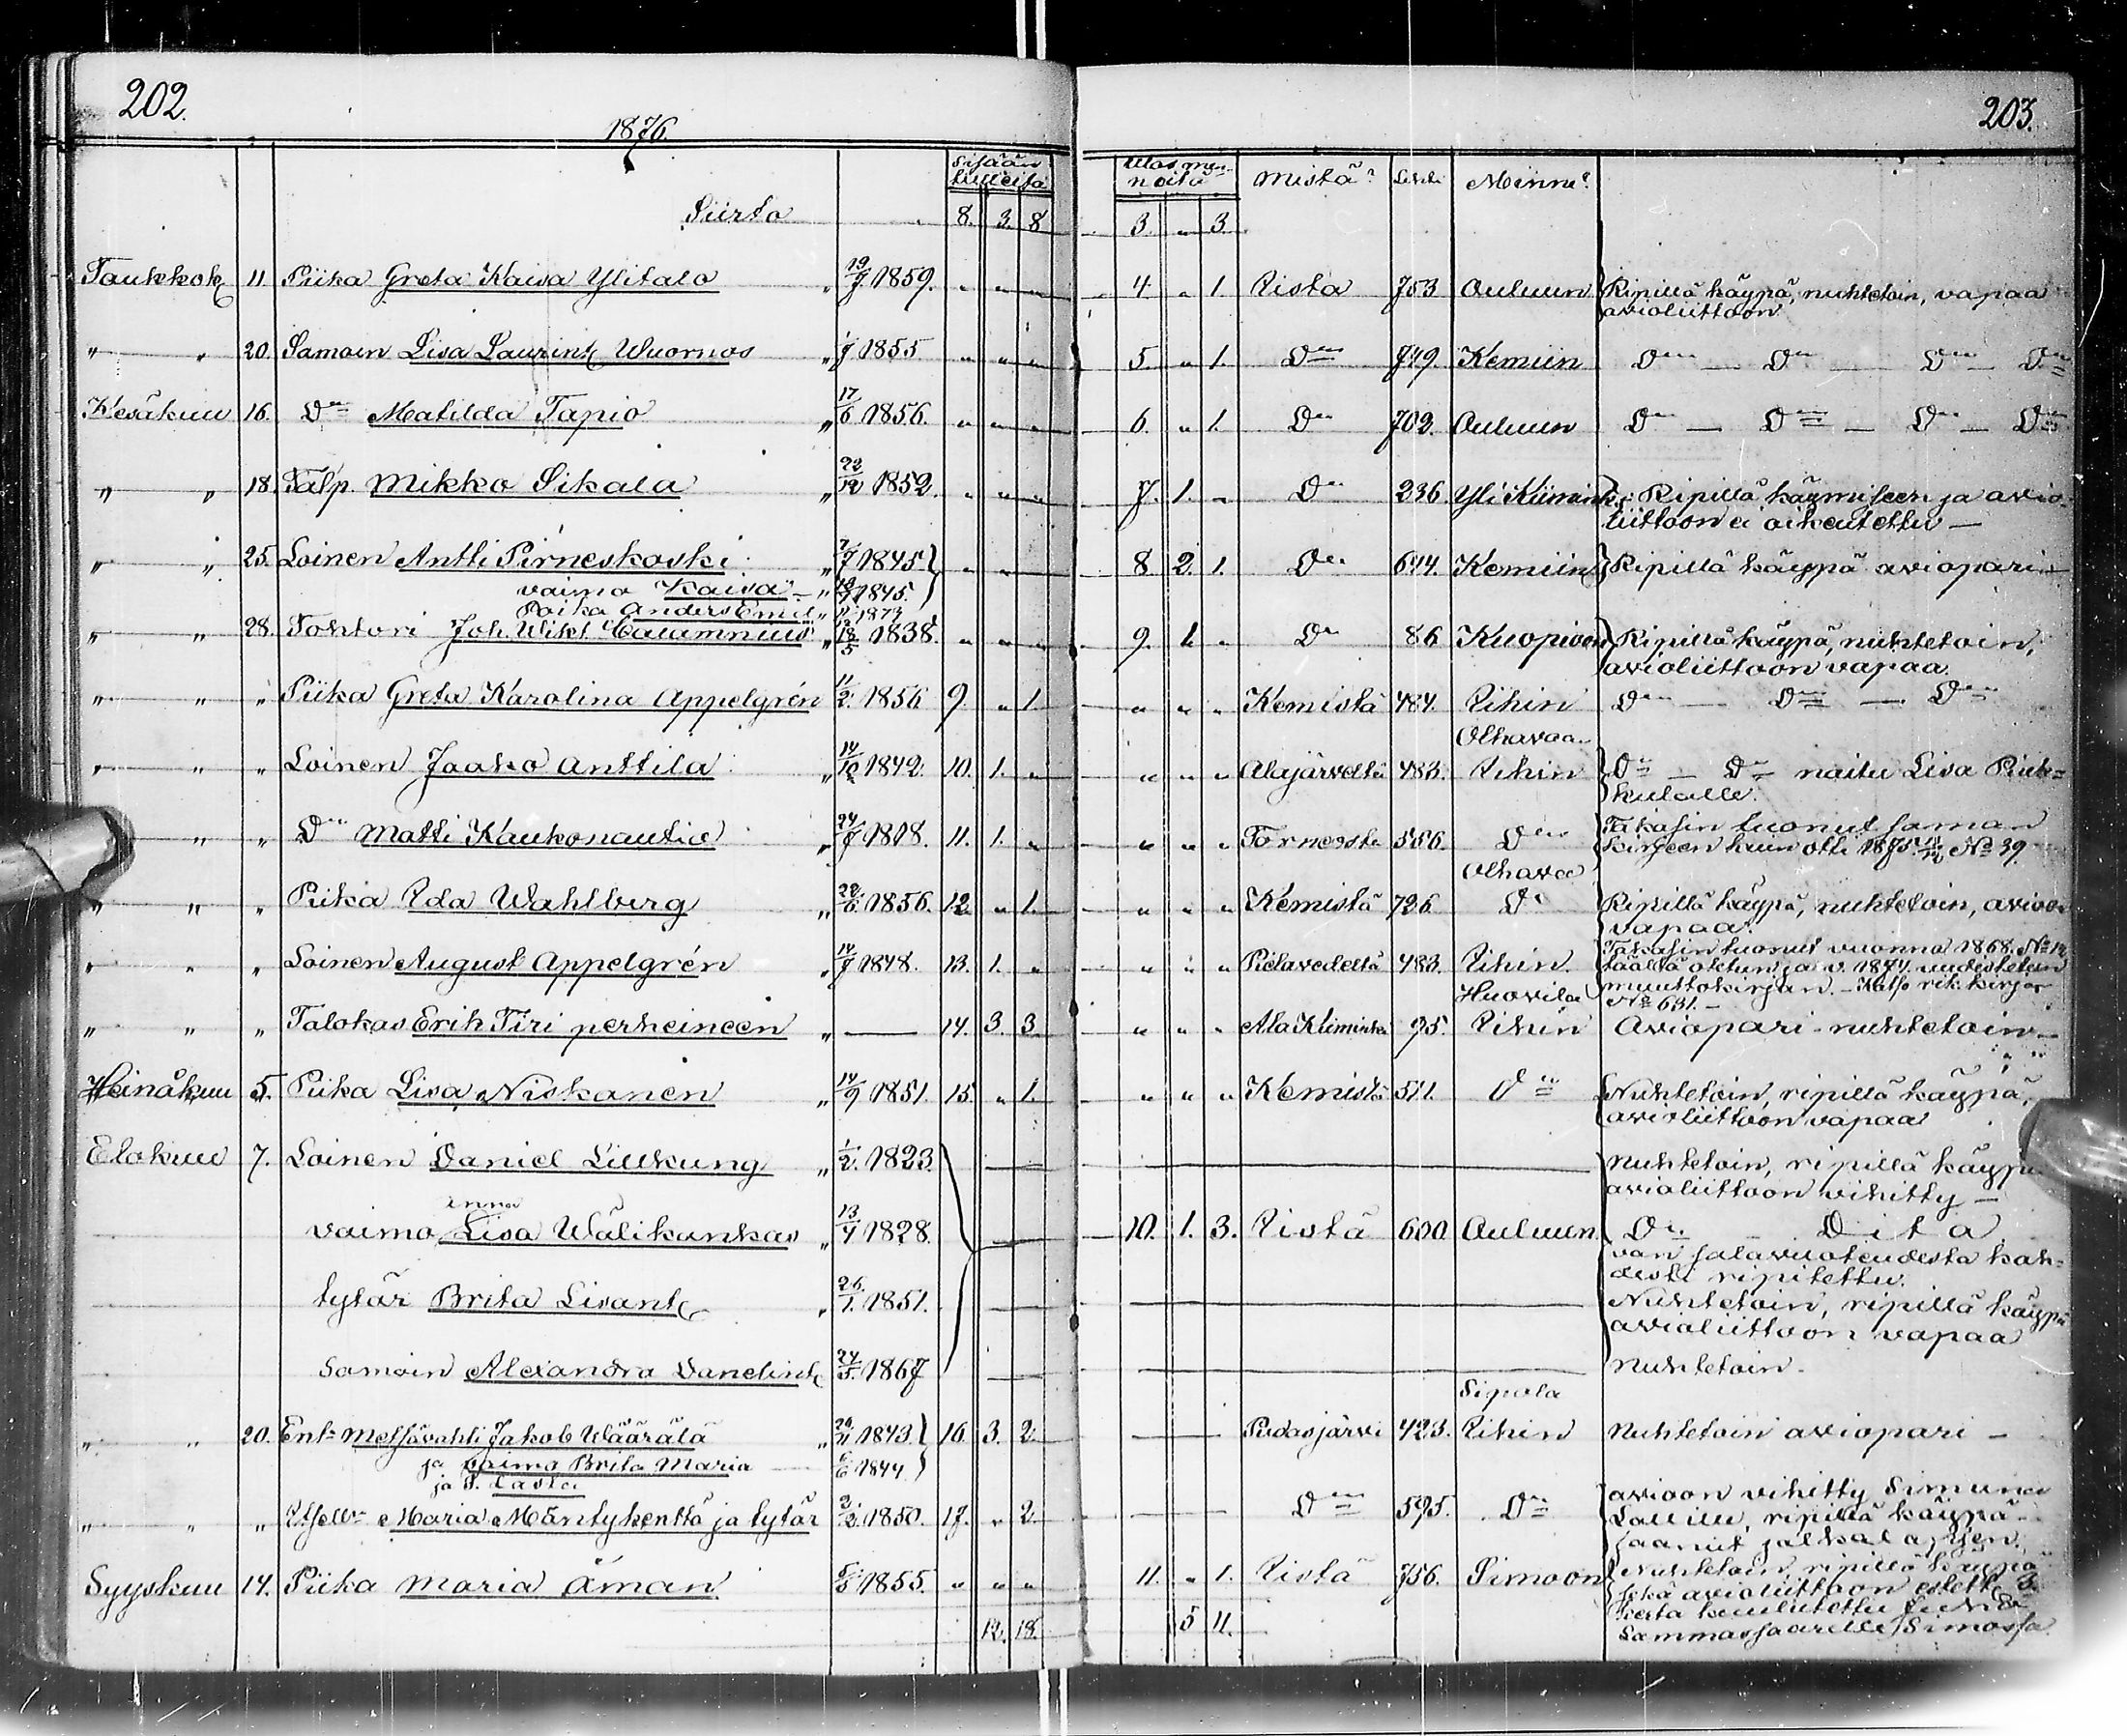 202.
1876.
203.
Sisään tulleita
Ulos mennoita
Mistä?
Lehti
Minne?
Siirto 8. 3. 8 3. „ 3.
Toukkok 11 Piika Greta Kaisa Ylitalo „ 19/7 1859. „ „ „ 4. „ 1. Iistä 753 Ouluun Ripillä käypä, nuhtetoin, vapaa
avioliittoon
„ „ 20. Samoin Lisa Laurint Wuornos „ 1855 „ „ „ 5. „ 1. Do 749. Kemiin Do — Do — Do — Do
Kesäkuu 16. Do Matilda Tapio „ 17/6 1856. „ „ „ 6. „ 1. Do 702. Ouluun Do — Do — Do — Do
„ „ 18. Talp. Mikko Sikala „ 22/12 1852. „ „ „ 7. 1. „ Do 236 Yli Kiimink Ripillä käymiseen ja avio-
liittoon ei oikeutettu —
„ „ 25. Loinen Antti Pirneskoski „ 7/7 1845 „ „ 8 2. 1. Do 644. Kemiin Ripillä käypä aviopari —
vaimo Kaisa — „ 1845.
Poika Anders Emil „ 1873
„ „ 28. Tohtori Joh. Wikt. Calamnius „ 18/5 1838. „ „ „ 9. 1. „ Do 86 Kuopioon Ripillä käypä, nuhtetoin,
avioliittoon vapaa.
„ „ „ Piika Greta Karolina Appelgrén 11/2 1856 9. „ 1. „ „ „ Kemistä 484. Iihin Do — Do — Do
Olhavaa
„ „ „ Loinen Jaako Anttila „ 14/12 1842. 10. 1. „ „ „ „ Alajärveltä 483. Iihin Do — Do — naitu Lisa Piuk-
kulalle.
„ „ Do Matti Kaukonautio „ 24/7 1818. 11. 1. „ „ „ „ Torneosta 556. Do Takasin tuonut saman
kirjeen kuin otti 1875 No 39.
Olhava
„ „ „ Piika Ida Wahlberg „ 22/6 1856. 12. „ 1. „ „ „ Kemistä 726 Do Ripillä käypä, nuhtetoin, avioon
vapaa.
„ „ „ Loinen August Appelgrén „ 14/7 1848. 13. 1. „ „ „ „ Pielavedeltä 483. Iihin. Takasin tuonut vuonna 1868. No 12
täältä otetun ja v. 1874. uudistetun
muuttokirjan. — Katso rik. kirja
No 631. —
Huovila
„ „ „ Talokas Erik Tiri perheineen „ — 14. 3. 3. „ „ „ Ala Kiiminki 95. Iihin Aviopari nuhtetoin —
Heinäkuu 5. Piika Lisa Niskanen „ 14/9 1851. 15. „ 1. „ „ „ Kemistä 511. Do Nuhtetoin, ripillä käypä,
avioliittoon vapaa
Elokuu 7. Loinen Daniel Lillkung „ 1/2 1823. — — Nuhtetoin, ripillä käypä
avioliittoon vihitty —
vaimo Lisa Wälikankas „ 13/4 1828. 10. 1. 3. Iistä 600 Ouluun. Do Dito
van salavuoteudesta kah-
desti ripitettu.
tytär Brita Lisant „ 26/1 1851. — — Nuhtetoin, ripillä käypä
avioliittoon vapaa
Samoin Alexandra Danelint 24/5 1867 — — Nuhtetoin.
Sipola
„ „ 20. Ent. Metsävahti Jakob Wäärälä „ 1843 16. 3. 2. — Pudasjärvi 423. Iihin Nuhtetoin aviopari —
ja vaimo Brita Maria — 1844
ja 3. lasta
„ „ „ Itsell: Maria Mäntykenttä ja tytär 2/2 1850. 17. „ 2. — Do 595. Do avioon vihitty Simuna
Lallille, ripillä käypä
saanut jalkalapsen.
Syyskuu 14. Piika Maria Åman 1855. „ „ „ 11. „ 1. Iistä 756. Simoon Nuhtetoin, ripillä käypä
sekä avioliittoon estett 3
kerta kuulutettu
Lammassaarelle Simossa
12. 18. 5 11.